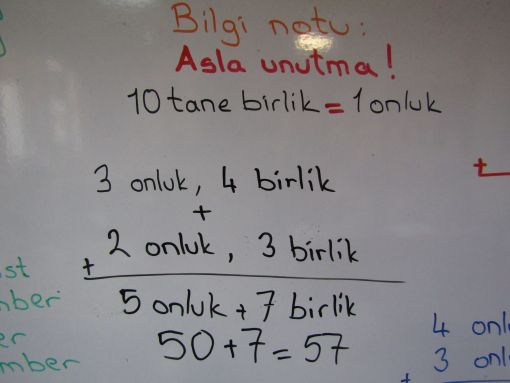 Bilgi notu:
Asla unutma!
10 tane birlik = 1 onluk
3 onluk, 4 birlik
+
+ 2 onluk, 3 birlik
5 onluk + 7 birlik
50 + 7 = 57
4
+ 3